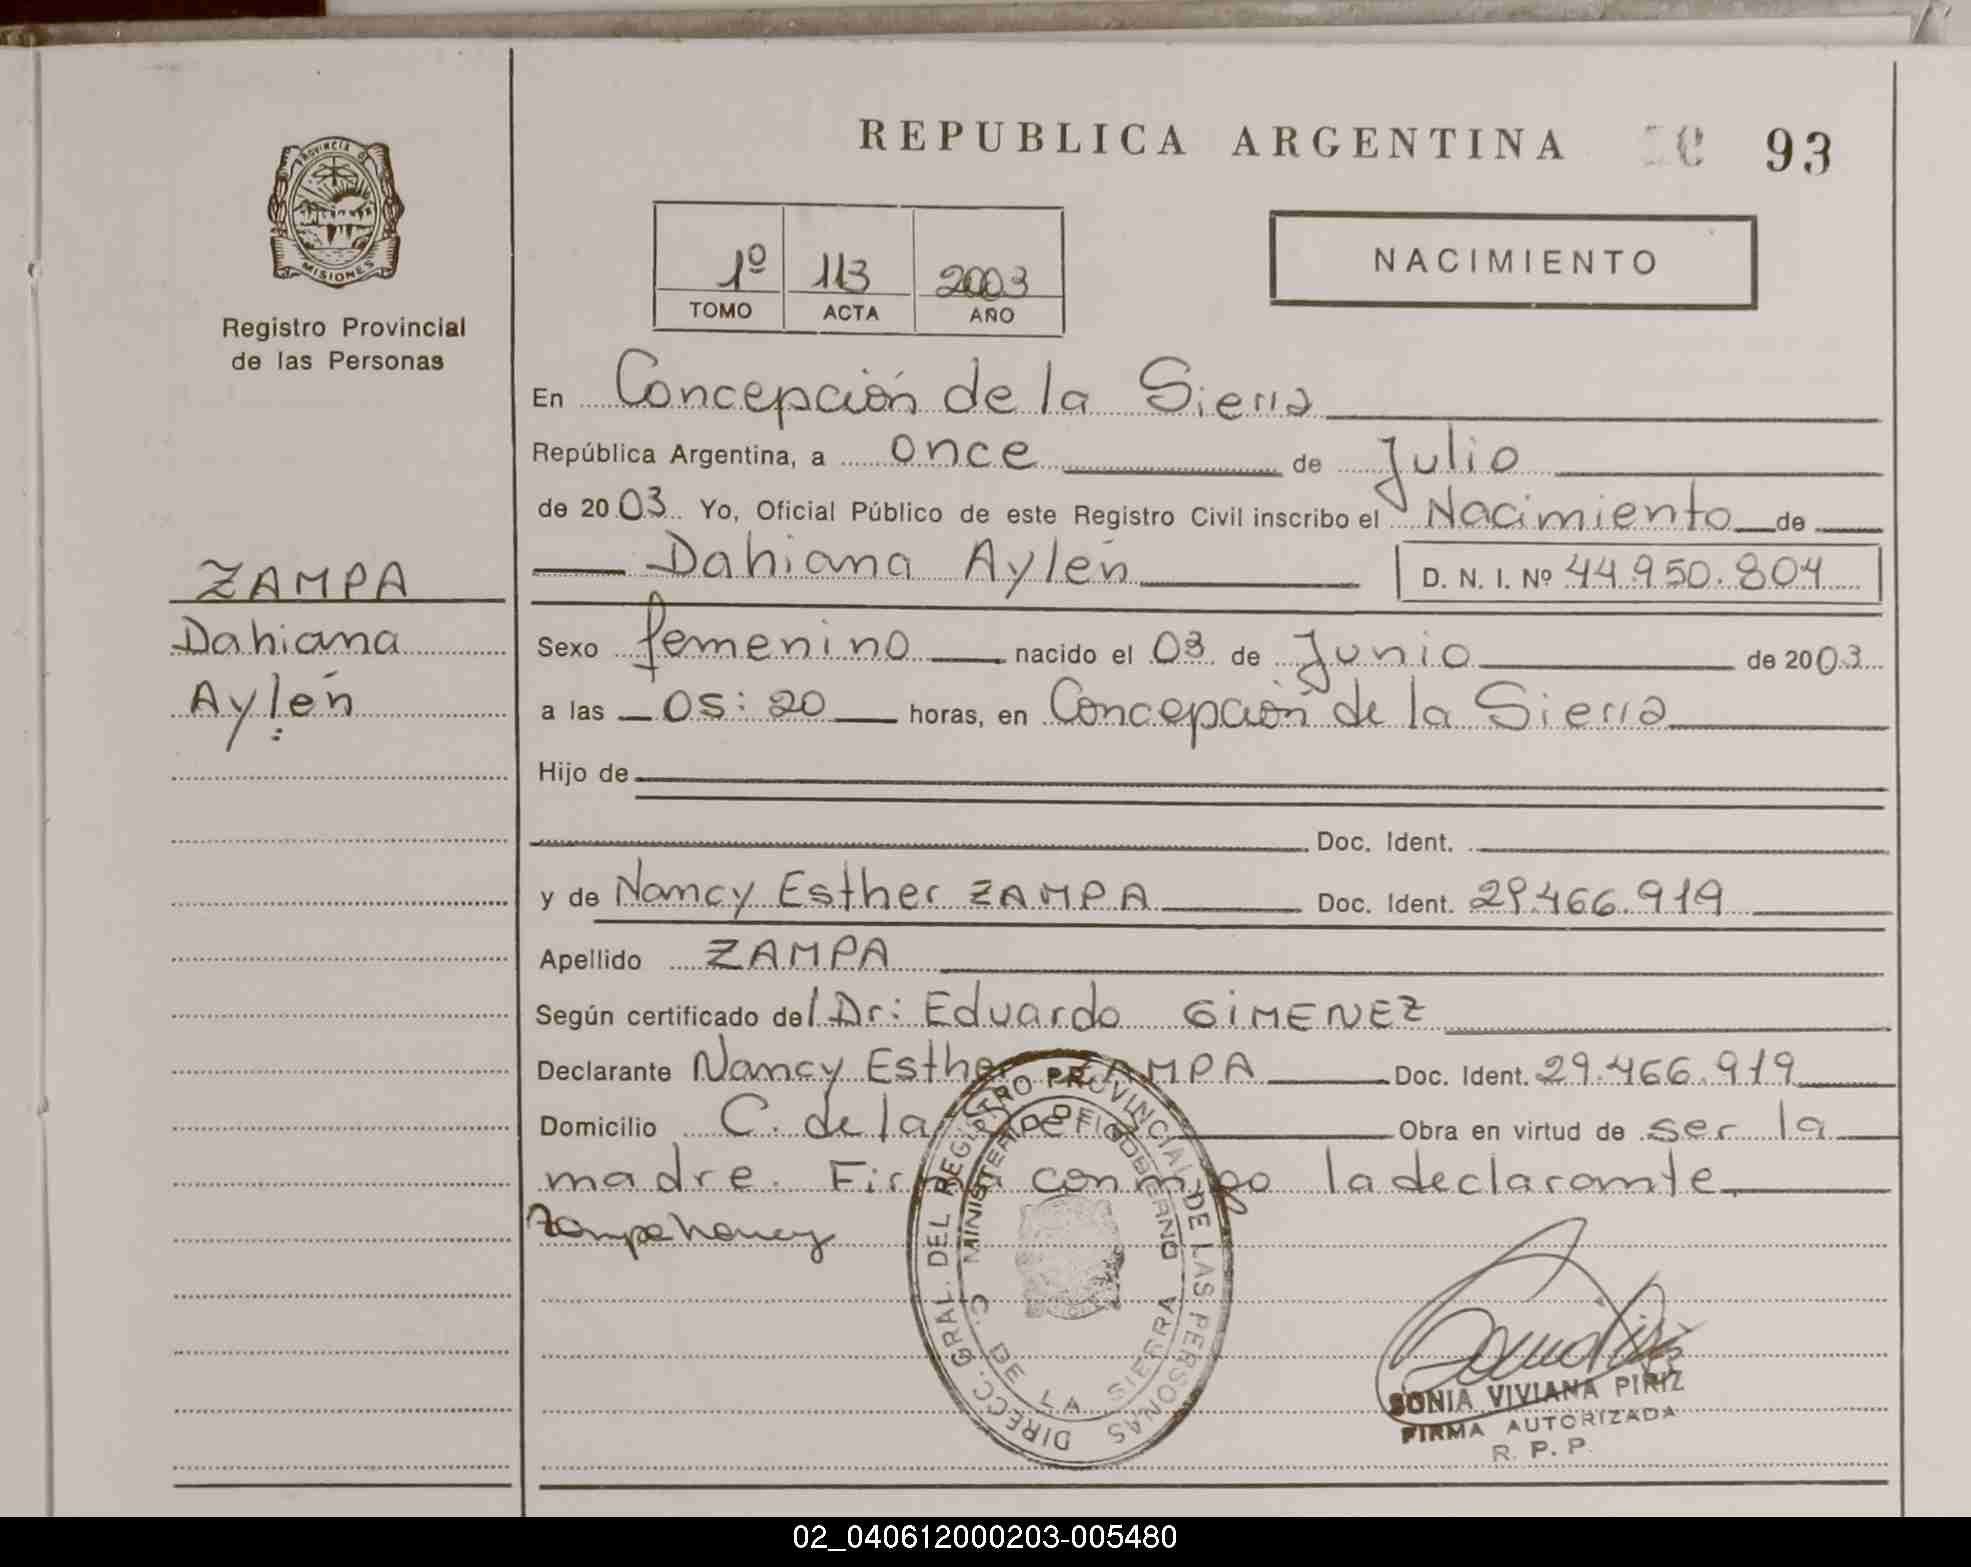 REPUBLICA ARGENTINA 93
PROVINCIA DE
MISIONES
Registro Provincial
de las Personas
1º 113 2003
TOMO ACTA AÑO
NACIMIENTO
En Concepción de la Sierra
República Argentina, a once de Julio
de 2003 Yo, Oficial Público de este Registro Civil inscribo el Nacimiento de
Dahiana Aylén D. N. I. Nº 44.950.804
ZAMPA
Dahiana
Aylén
Sexo femenino nacido el 03 de Junio de 2003
a las 05:20 horas, en Concepción de la Sierra
Hijo de
Doc. Ident.
y de Nancy Esther ZAMPA Doc. Ident. 29.466.919
Apellido ZAMPA
Según certificado del Dr: Eduardo GIMENEZ
Declarante Nancy Esther ZAMPA Doc. Ident. 29.466.919
Domicilio C. de la Obra en virtud de ser la
madre. Firma conmigo la declarante
Zampa Nancy
DIRECC. GRAL. DEL REGISTRO PROVINCIAL DE LAS PERSONAS
MINISTERIO DE GOBIERNO
C. DE LA SIERRA
SONIA VIVIANA PIRIZ
FIRMA AUTORIZADA
R. P. P.
02_040612000203-005480